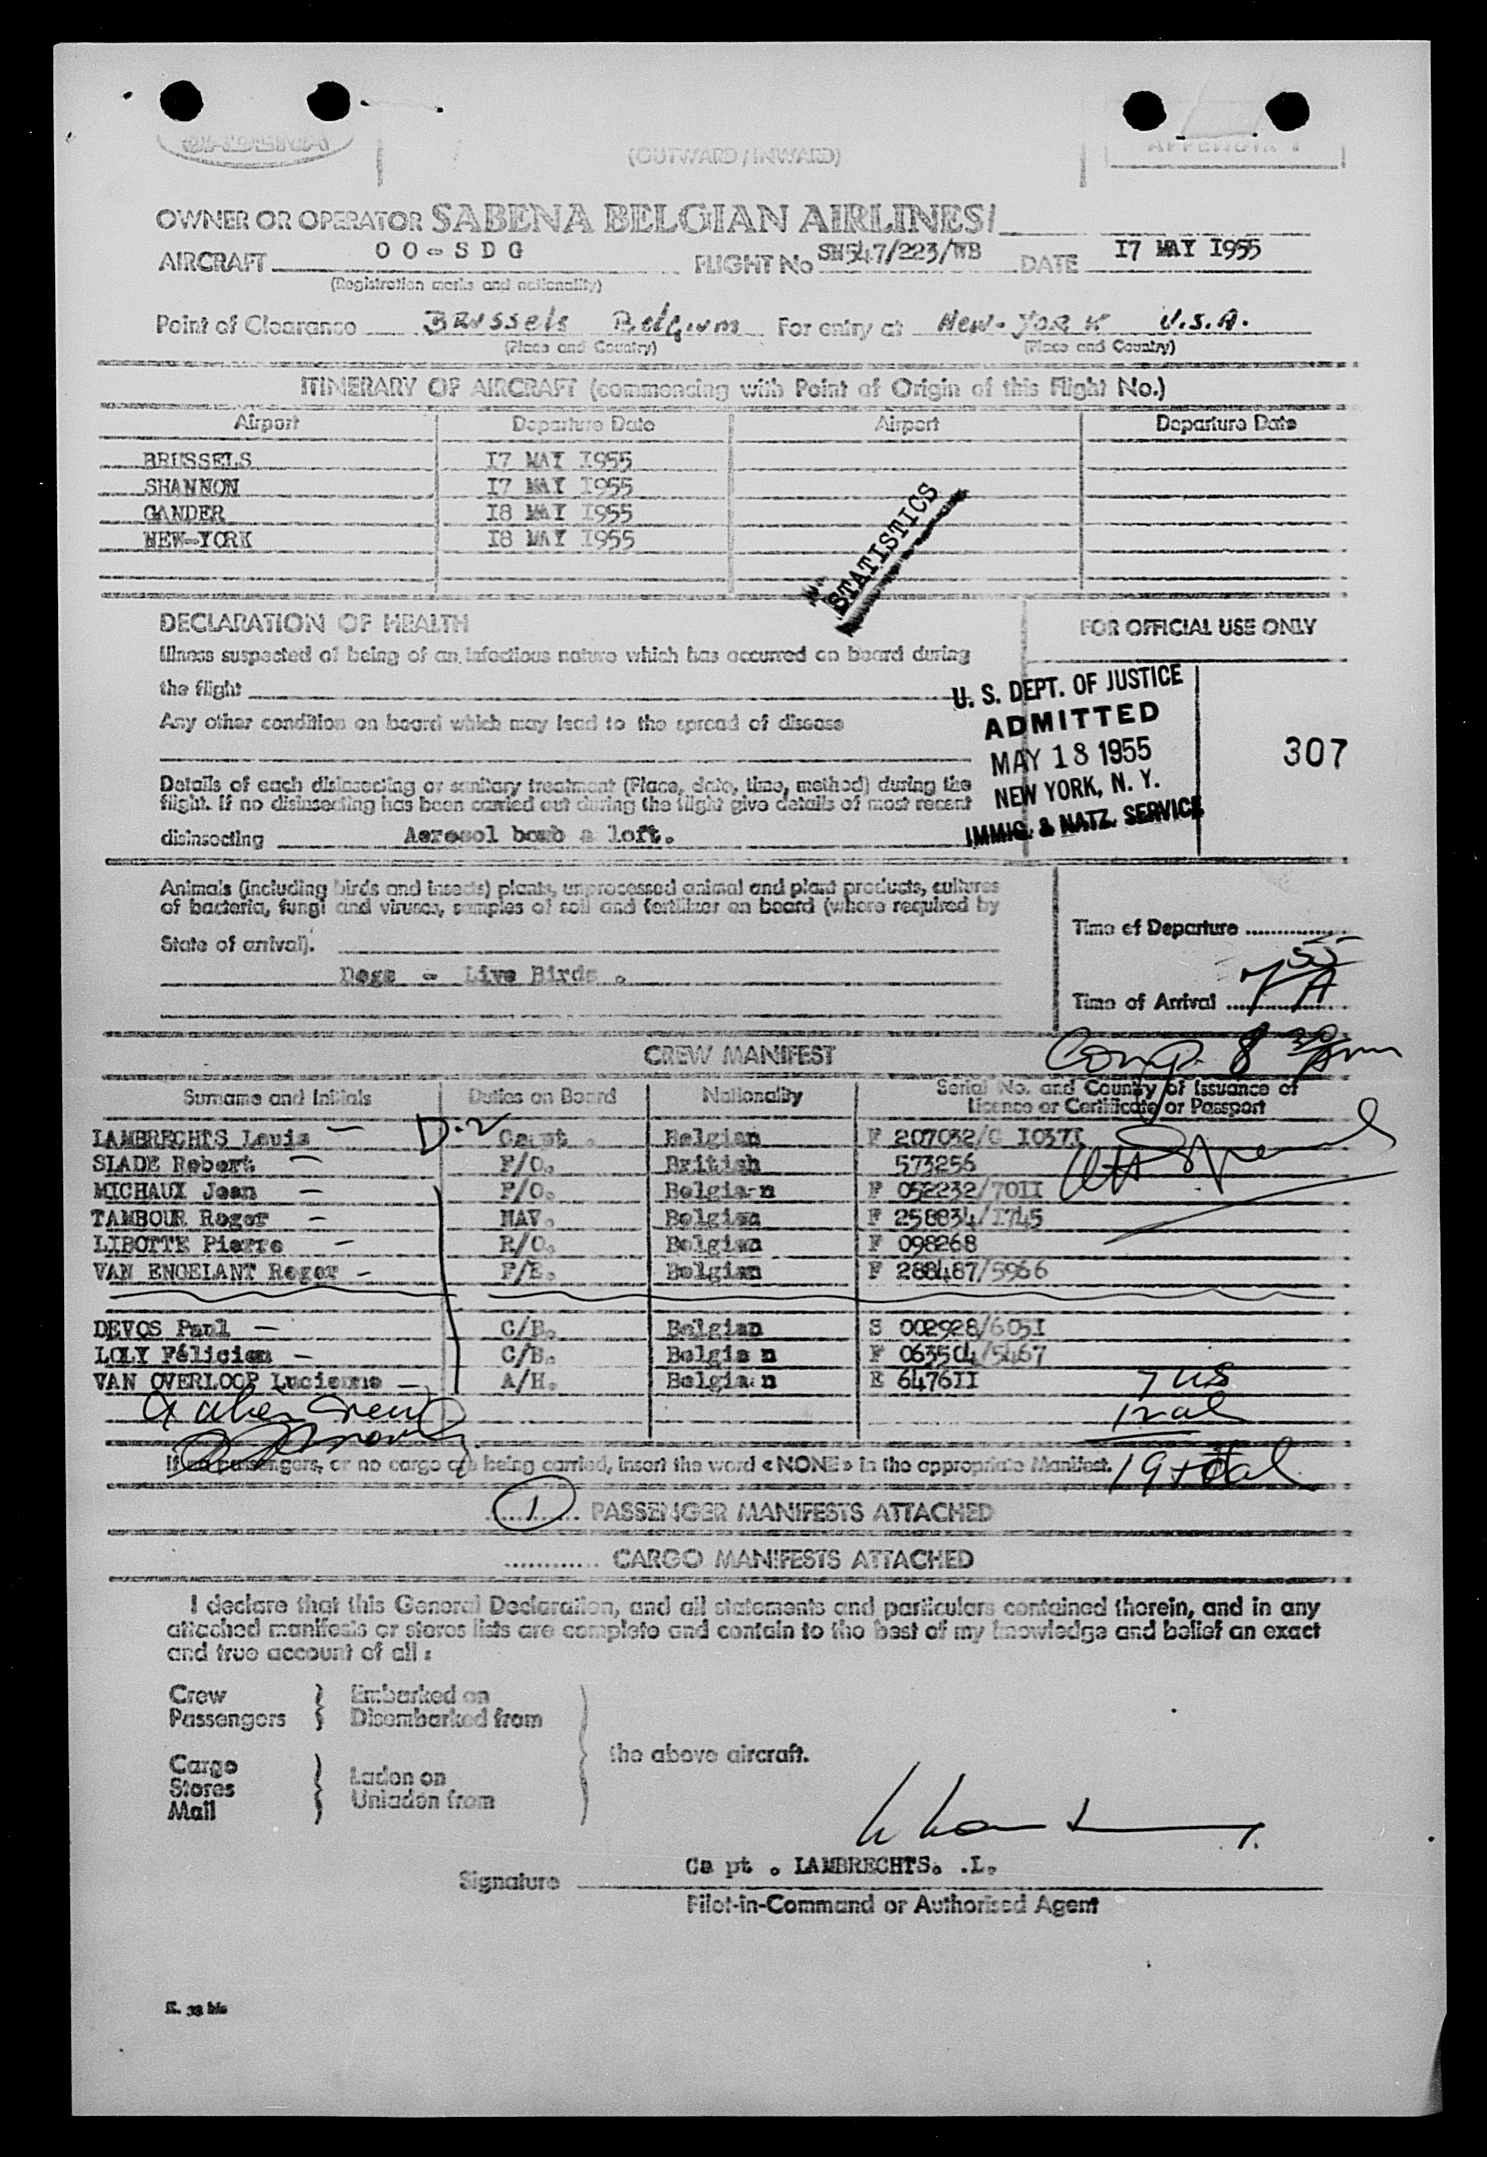 SABENA
(OUTWARD/INWARD)
APPENDIX 1
OWNER OR OPERATOR SABENA BELGIAN AIRLINES/
AIRCRAFT OO-SDG FLIGHT No SN547/223/WB DATE 17 MAY 1955
(Registration marks and nationality)
Point of Clearance Brussels Belgium For entry at New-York U.S.A.
(Place and Country) (Place and Country)
ITINERARY OF AIRCRAFT (commencing with Point of Origin of this Flight No.)
Airport Departure Date Airport Departure Date
BRUSSELS I7 MAY I955
SHANNON I7 MAY I955
GANDER I8 MAY I955
NEW-YORK I8 MAY I955
STATISTICS
DECLARATION OF HEALTH
FOR OFFICIAL USE ONLY
Illness suspected of being of an infectious nature which has occurred on board during
the flight
Any other condition on board which may lead to the spread of disease
U. S. DEPT. OF JUSTICE
ADMITTED
MAY 18 1955
NEW YORK, N. Y.
IMMIG. & NATZ. SERVICE
307
Details of each disinsecting or sanitary treatment (Place, date, time, method) during the
flight. If no disinsecting has been carried out during the flight give details of most recent
disinsecting Aerosol bomb a loft.
Animals (including birds and insects) plants, unprocessed animal and plant products, cultures
of bacteria, fungi and viruses, samples of soil and fertilizer on board (where required by
State of arrival).
Dogs - Live Birds .
Time of Departure
Time of Arrival 7 55 A
Comp. 8 30 Am
CREW MANIFEST
Surname and Initials Duties on Board Nationality Serial No. and Country of Issuance of
Licence or Certificate or Passport
LAMBRECHTS Louis - D-2 Capt . Belgian F 207032/C I037I
SLADE Robert - F/O. British 573256
MICHAUX Jean - F/O. Belgian F 052232/70II
TAMBOUR Roger - NAV. Belgian F 258834/I745
LIBOTTE Pierre - R/O. Belgian F 098268
VAN ENGELANT Roger - F/E. Belgian F 288487/5966
DEVOS Paul - C/B. Belgian S 002928/605I
LOLY Félicien - C/B. Belgian F 063504/5467
VAN OVERLOOP Lucienne - A/H. Belgian E 6476II
7 US
12 al
19 total
If no passengers, or no cargo are being carried, insert the word « NONE » in the appropriate Manifest.
1 PASSENGER MANIFESTS ATTACHED
............ CARGO MANIFESTS ATTACHED
I declare that this General Declaration, and all statements and particulars contained therein, and in any
attached manifests or stores lists are complete and contain to the best of my knowledge and belief an exact
and true account of all :
Crew
Passengers
Embarked on
Disembarked from
Cargo
Stores
Mail
Laden on
Unladen from
the above aircraft.
Signature Capt . LAMBRECHTS. .L.
Pilot-in-Command or Authorised Agent
K. 38 bis